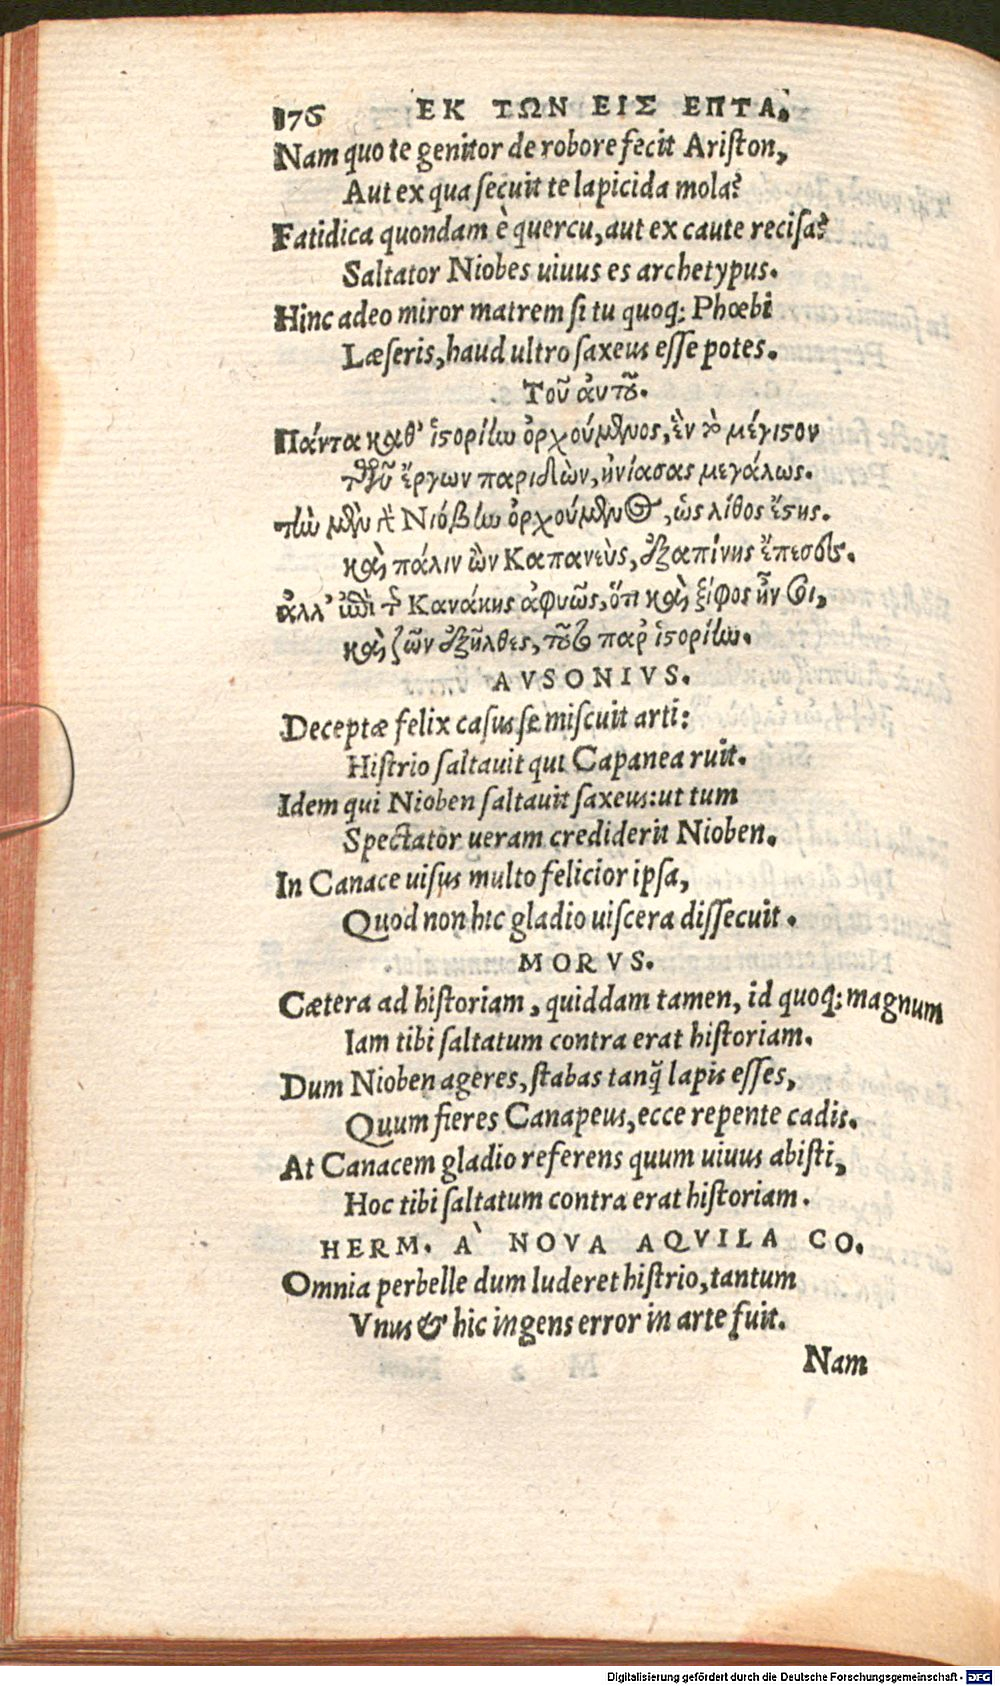 176 ΕΚ ΤΩΝ ΕΙΣ ΕΠΤΑ.
Nam quo te genitor de robore fecit Ariſton,
Aut ex qua ſecuit te lapicida mola?
Fatidica quondam è quercu, aut ex caute reciſa?
Saltator Niobes uiuus es archetypus.
Hinc adeo miror matrem ſi tu quoq; Phœbi
Læſeris, haud ultro ſaxeus eſſe potes.
Τοῦ ἀυτοῦ.
Πάντα καθ' ἱστορίην ὀρχούμενος, ἓν τὸ μέγιστον
τῶν ἔργων παριδὼν, ἠνίασας μεγάλως.
τὴν μὲν γὸ Νιόβην ὀρχούμενος, ὡς λίθος ἔστης.
καὶ πάλιν ὢν Καπανεὺς, ἐξαπίνης ἔπεσες.
ἀλλ' ἐπὶ τῆς Κανάκης ἀφυῶς, ὅτι καὶ ξίφος ἦν σοι,
καὶ ζῶν ἐξῆλθες, τοῦτο παρ' ἱστορίην.
AVSONIVS.
Deceptæ felix caſus ſe miſcuit arti:
Hiſtrio ſaltauit qui Capanea ruit.
Idem qui Nioben ſaltauit ſaxeus: ut tum
Spectator ueram crediderit Nioben.
In Canace uiſus multo felicior ipſa,
Quod non hic gladio uiſcera diſſecuit.
MORVS.
Cætera ad hiſtoriam, quiddam tamen, id quoq; magnum
Iam tibi ſaltatum contra erat hiſtoriam.
Dum Nioben ageres, ſtabas tanq̃ lapis eſſes,
Quum fieres Canapeus, ecce repente cadis.
At Canacem gladio referens quum uiuus abiſti,
Hoc tibi ſaltatum contra erat hiſtoriam.
HERM. A` NOVA AQVILA CO.
Omnia perbelle dum luderet hiſtrio, tantum
Vnus & hic ingens error in arte fuit.
Nam
Digitalisierung gefördert durch die Deutsche Forschungsgemeinschaft - DFG